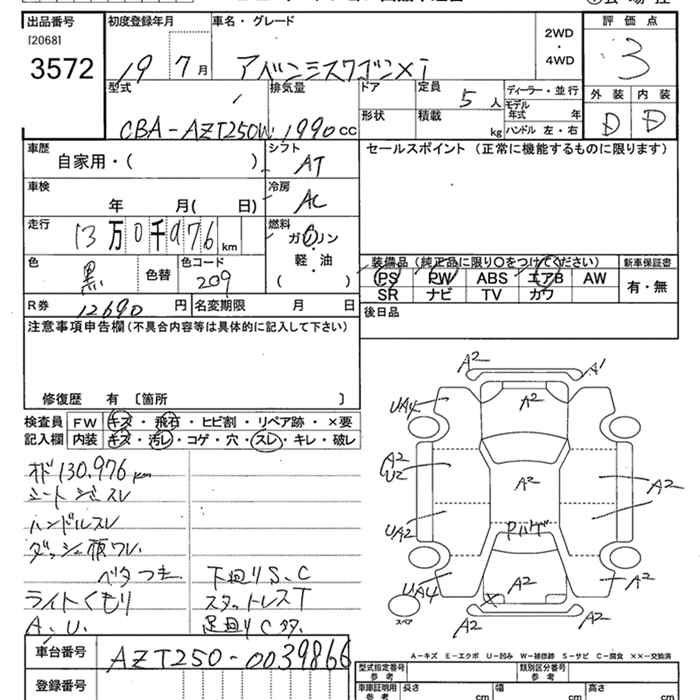 出品番号 初度登録年月 車名・グレード 2WD・4WD 評価点
[2068]
3572 19 7月 アベンシスワゴンXi 3
型式 排気量 ドア 定員 5人 ディーラー・並行 外装 内装
CBA-AZT250W 1990 cc 形状 積載 kg モデル年式 年 D D
ハンドル 左・右
車歴 自家用・( ) シフト AT セールスポイント (正常に機能するものに限ります)
車検 年 月( 日) 冷房 AC
走行 13万0千976 km 燃料 ガソリン・軽・油 ( )
色 黒 色替 色コード 209 装備品 (純正品に限り○をつけてください) 新車保証書
PS PW ABS エアB AW 有・無
SR ナビ TV カワ
R券 12690 円 名変期限 月 日 後日品
注意事項申告欄 (不具合内容等は具体的に記入して下さい)
修復歴 有 〔箇所 〕
検査員 FW キズ・飛石・ヒビ割・リペア跡・×要
記入欄 内装 キズ・汚レ・コゲ・穴・スレ・キレ・破レ
オド130.976km
シート シミ スレ
ハンドルスレ
ダッシュ廻ワレ
ベタつき 下廻りS、C
ライトくもり スタットレスT
A.U. 足廻りCタ
車台番号 AZT250-0039866
登録番号
A2 A1
UA4 A2
A2
U2 A2 A2
UA2 Pルーフ
UA4 A2 A2
スペア A2 A2
A-キズ E-エクボ U-凹み W-補修跡 S-サビ C-腐食 ××-交換済
型式指定番号 参考 類別区分番号 参考
車庫証明用 参考 長さ cm 幅 cm 高さ cm